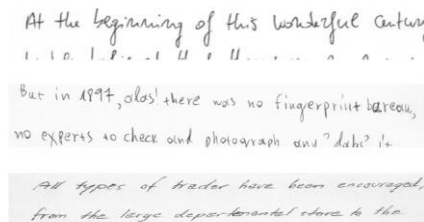 At the beginning of this wonderful century
But in 1897, alas! there was no fingerprint bureau,
no experts to check and photograph any "dabs" it
All types of trader have been encouraged,
from the large departmental store to the